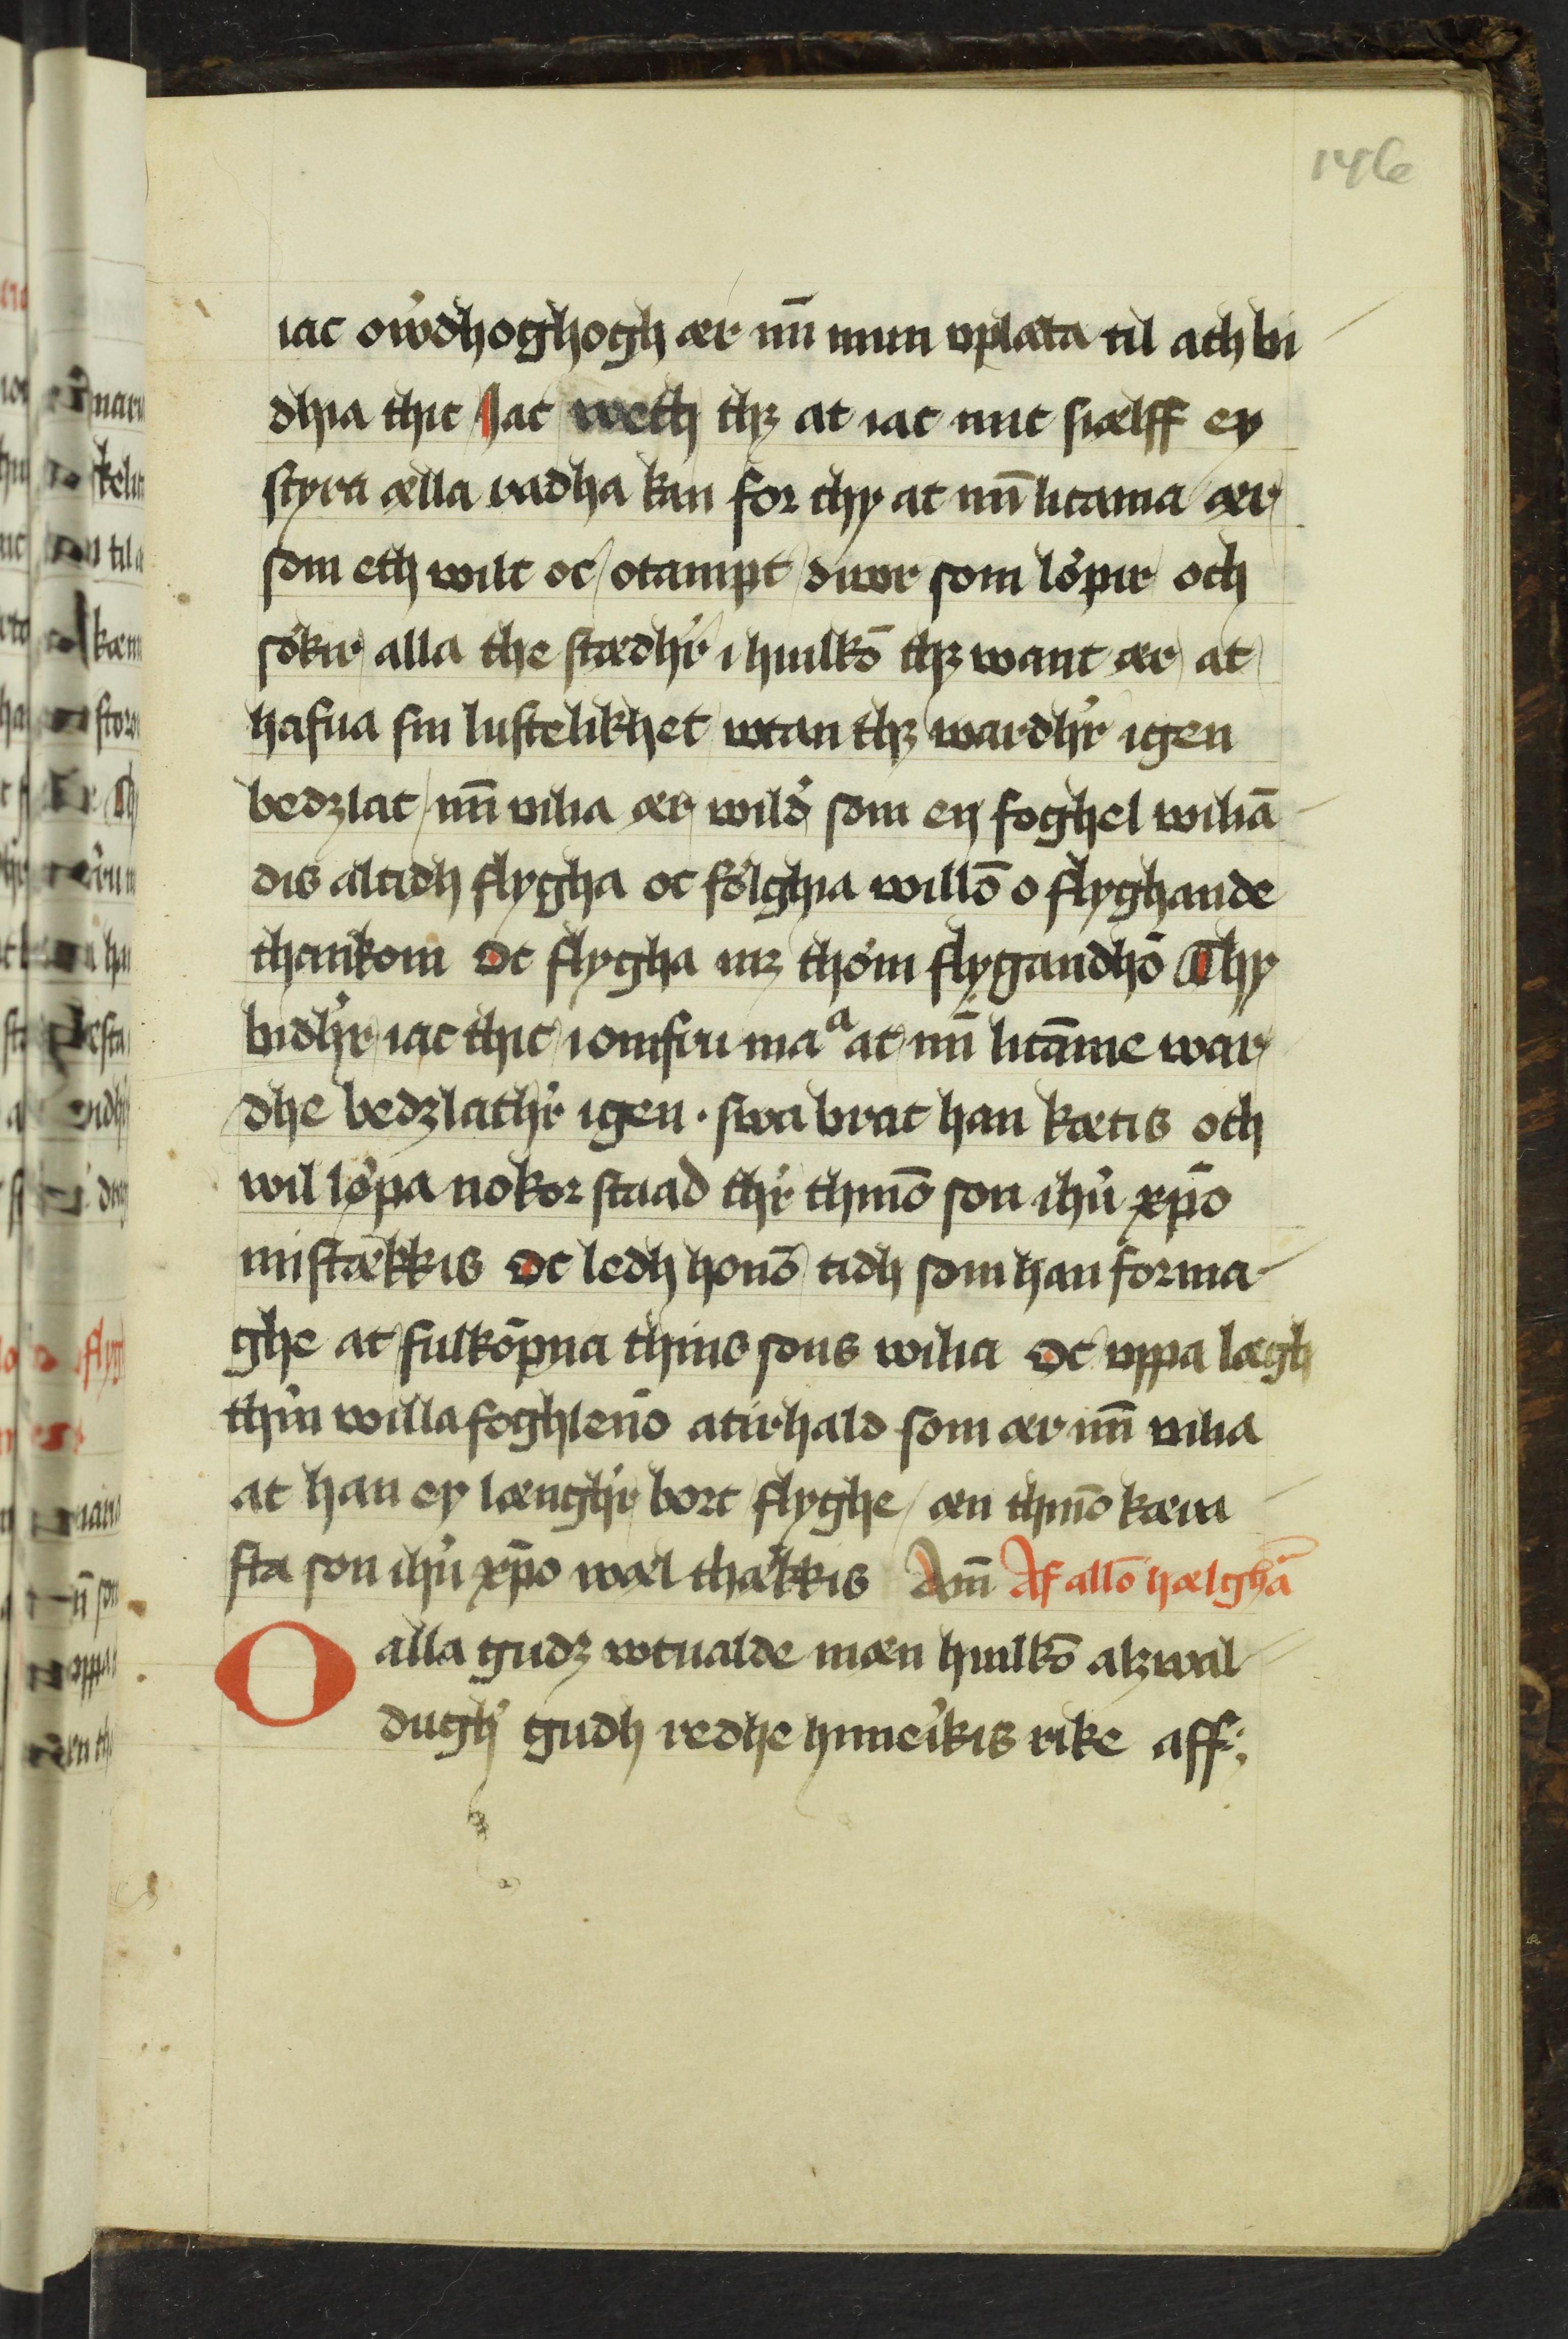 146
iac ow̓dhoghogh ær mī mun vplata til ath bi
dhia thic Jac weth thʒ at iac mic siælff ey
styra ælla radha kan for thy at mī licama ær
som eth wilt oc otampt diwr som lópir och
sókir alla the stædhr̓ i huilkō thʒ want ær at
hafua sin lustelikhet wtan thʒ wardhr̓ igen
bedzlat mī vilia ær wild̓ som en foghel wiliā
dis altidh flygha oc fólghia willō o flyghande
thankom Oc flygha mʒ thóm flygandhō Thy
bidhr̓ iac thic iomfru maᵃ at mī licāme war
dhe bedzlathr̓ igen · swa brat han kætis och
wil lópa nokor staad thr̓ thinō son ihū xpō
mistækkis Oc ledh honō tidh som han forma
ghe at fulkōpna thins sons wilia Oc vppa lægh
thin̄ willa foghlenō atirhald som ær mī vilia
at han ey længhr̓ bort flyghe æn thinō kæra
sta son ihū xpō wæl thækkis Am̄ Af allō hælghā
O alla gudz wtualde mæn huilkō alzwal
dugh̓ gudh redhe himeṙikis rike aff